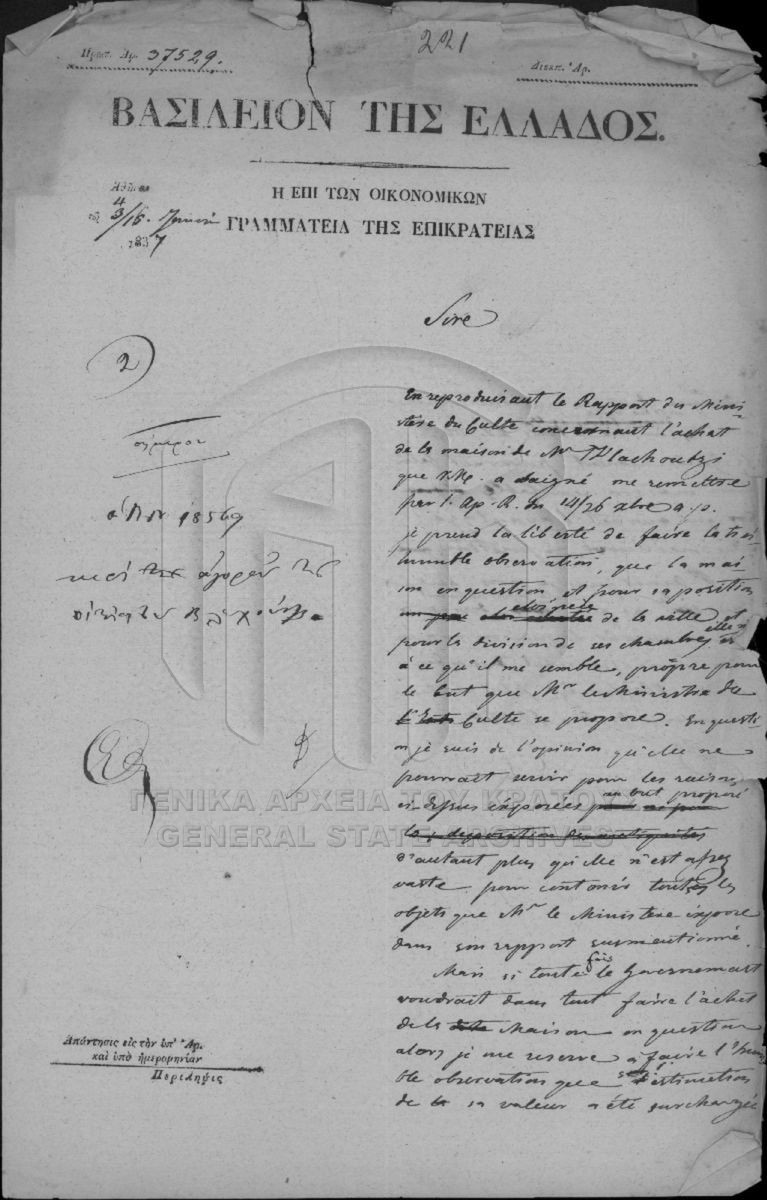 Πρωτ. Αρ. 37529.
221
Διεκπ. Ἀρ.
ΒΑΣΙΛΕΙΟΝ ΤΗΣ ΕΛΛΑΔΟΣ.
Η ΕΠΙ ΤΩΝ ΟΙΚΟΝΟΜΙΚΩΝ
ΓΡΑΜΜΑΤΕΙΑ ΤΗΣ ΕΠΙΚΡΑΤΕΙΑΣ
Ἀθῆναι
4
3/16
1837
Sire
2
σήμερον
18569
περὶ τῆς ἀγορᾶς τῆς
En reproduisant le Rapport du Minis-
tère du Culte concernant l'achat
de la maison de Mr Vlachoutzi
que V.M. a daigné me remettre
par l. Ap. R. du 14/26 xbre a.p.
je prend la liberté de faire la très
humble observation, que la mai-
son en question, et pour sa position
éloignée de la ville et
pour la division de ses chambres
à ce qu'il me semble, propre pour
le but que Mr le Ministère du
Culte se propose. En questi-
on je suis de l'opinion qu'elle ne
pourrait servir pour les raisons
ci dessus exposées au but proposé
d'autant plus qu'elle n'est assez
vaste pour contenir toutes les
objets que Mr le Ministère expose
dans son rapport susmentionné.
Mais si toute fois le Gouvernement
voudrait dans tout faire l'achat
de la Maison en question
alors je me reserve à faire l'hum-
ble observation que l'estimation
de sa valeur a été surchargée
ΓΕΝΙΚΑ ΑΡΧΕΙΑ ΤΟΥ ΚΡΑΤΟΥΣ
GENERAL STATE ARCHIVES
Ἀπάντησις εἰς τὴν ὑπ' Ἀρ.
καὶ ὑπὸ ἡμερομηνίαν
Περίληψις